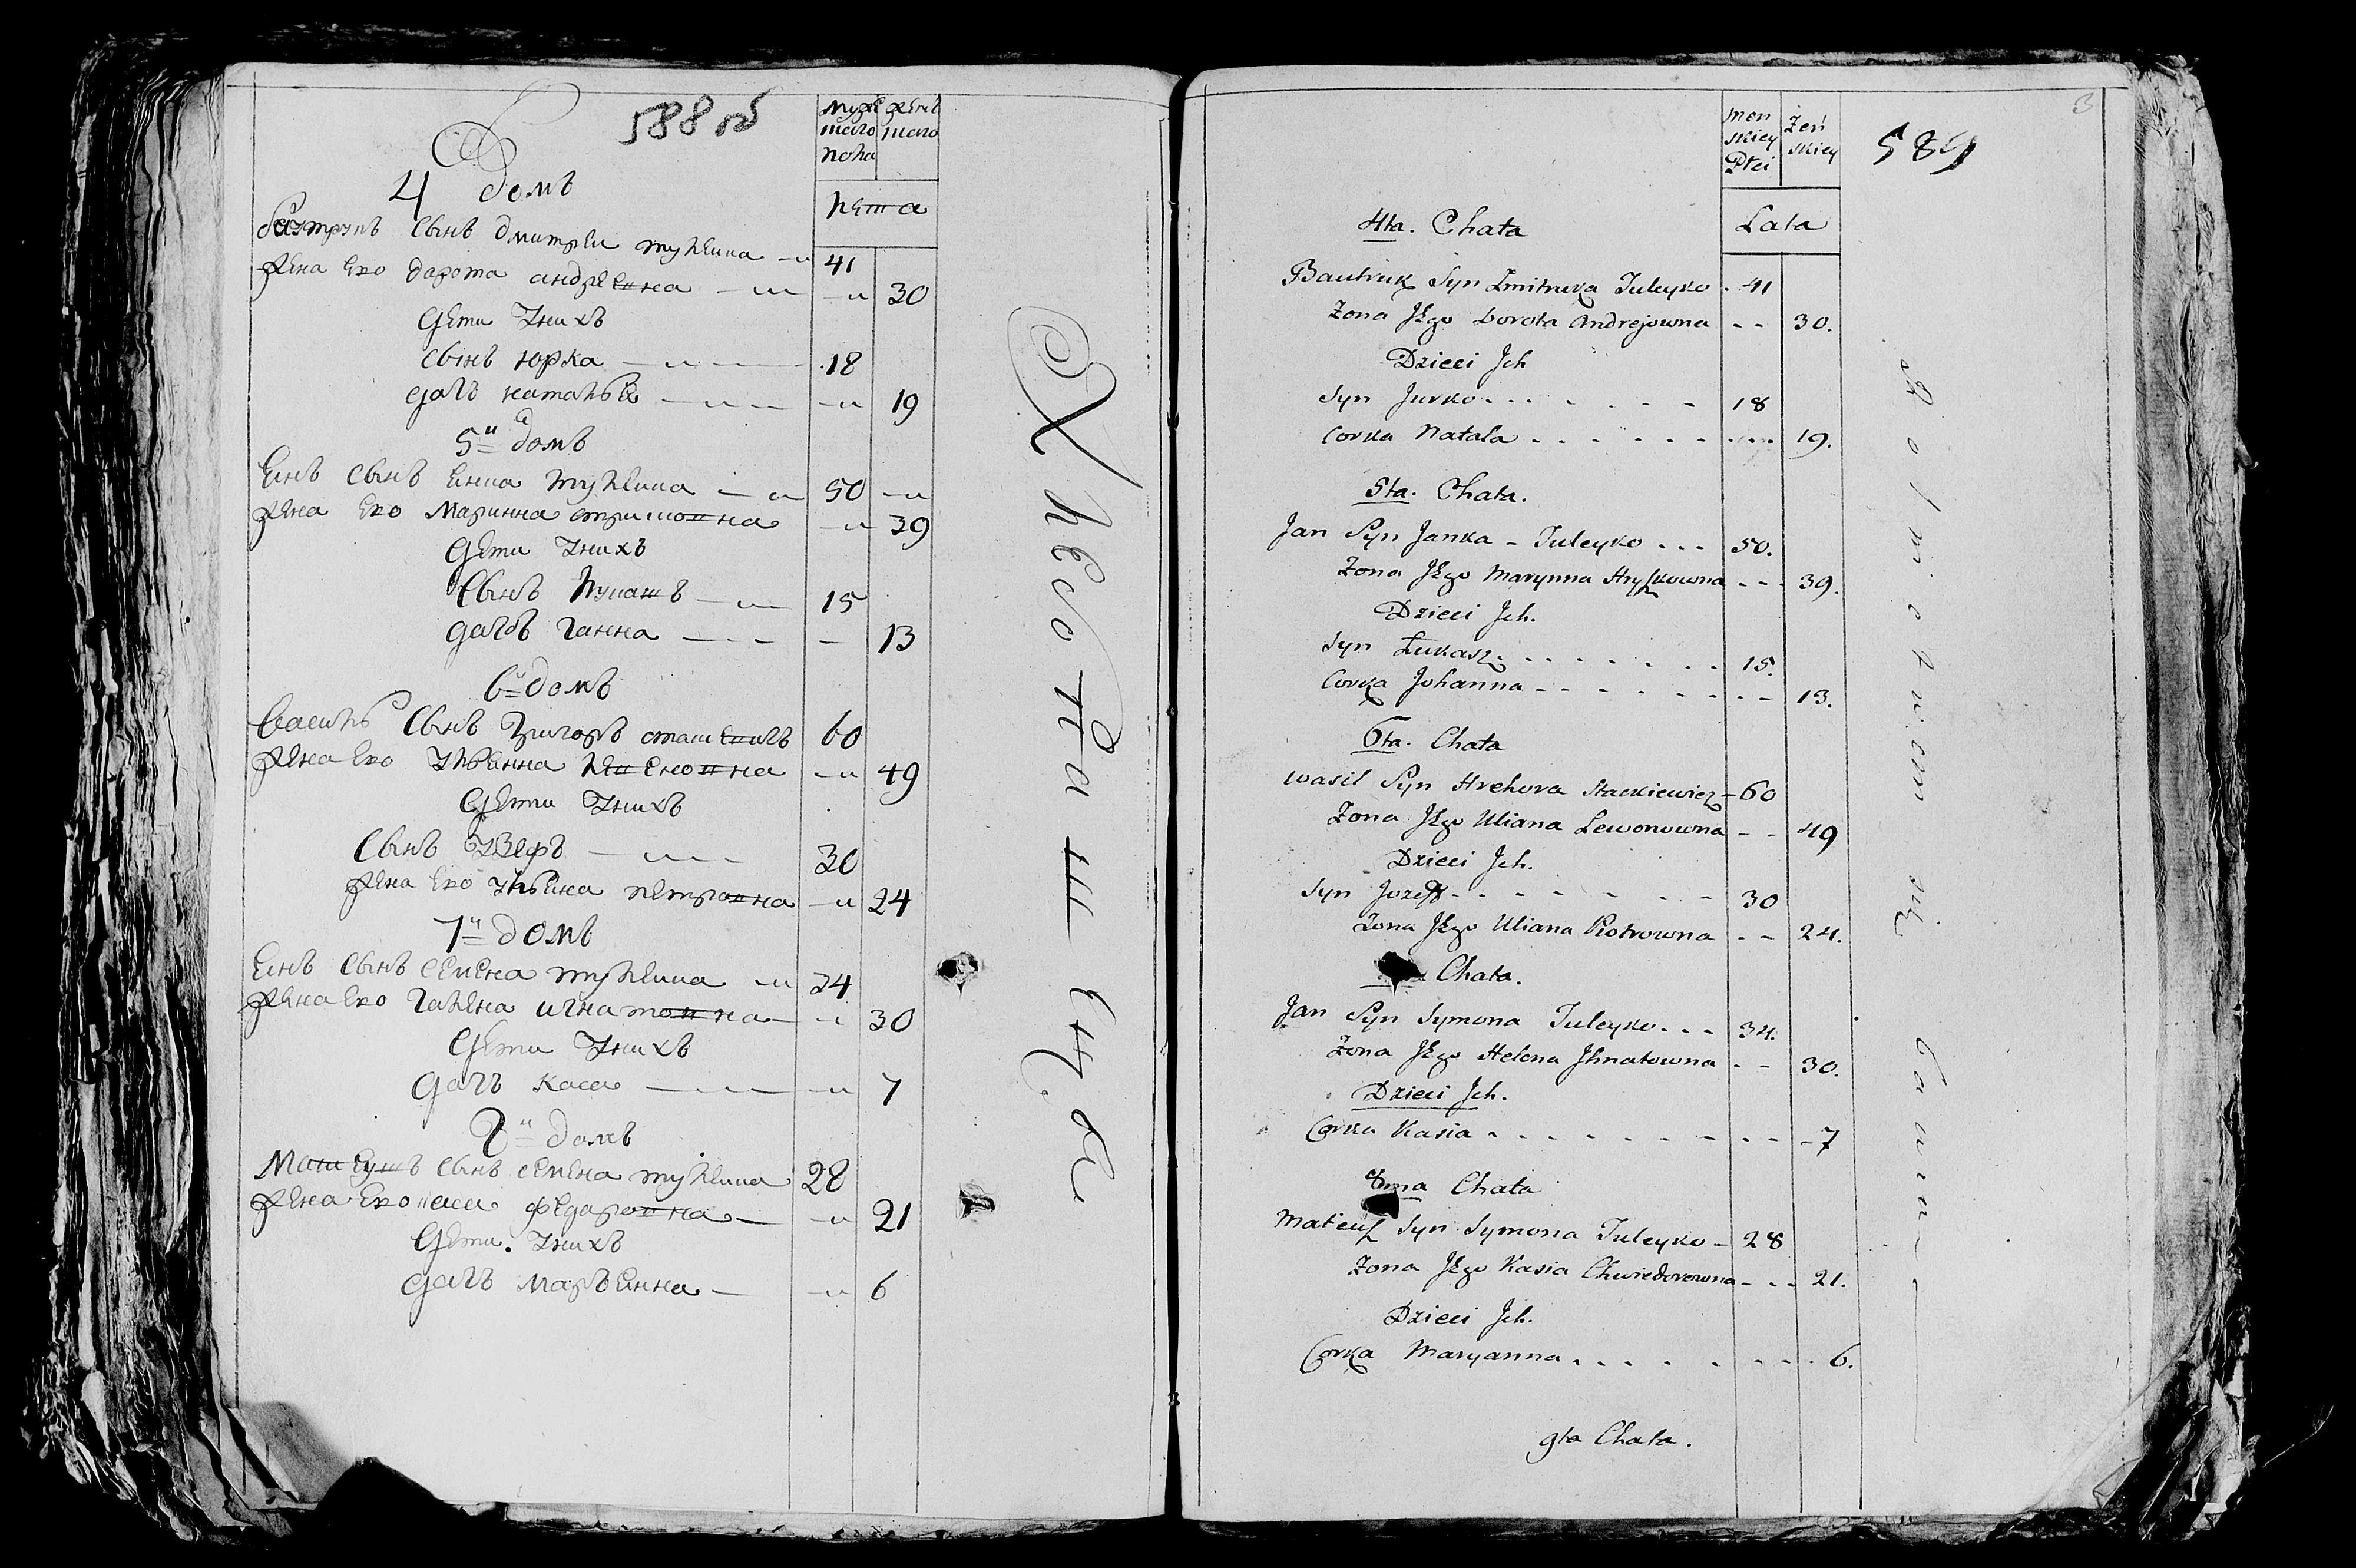 588 об
мужеска женска
шаго шаго
пола
лета
4 домъ
Бавтрукъ сынъ дмитрея тулеика 41
жена ево дарота андреевна 30
дети Унихъ
сынъ юрка 18
дачь наталья 19
5й домъ
Янъ сынъ янка тулеика 50
жена ево Маринна стришовна 39
дети Унихъ
сынъ лукашъ 15
дачь ганна 13
6й домъ
Василь сынъ Григоръ сташевичъ 60
жена ево ульянна левоновна 49
дети Унихъ
сынъ Узефъ 30
жена ево ульяна петровна 24
7й домъ
Янъ сынъ семена тулеика 34
жена ево галена игнатовна 30
дети Унихъ
дачь кася 7
8й домъ
Матеушъ сынъ семена тулеика 28
жена ево кася федаровна 21
дети Унихъ
дачь марьянна 6
men żeń
skiey skiey
Płci
Lata
589
3
4ta. Chata
Bautruk Syn Zmitruka Tuleyko 41
Zona Jego Dorota Andrejowna 30.
Dzieci Jch
Syn Jurko 18
Corka Natala 19.
5ta. Chata.
Jan Syn Janka Tuleyko 50.
Zona Jego Marynna Hryszkowna 39.
Dzieci Jch.
Syn Łukasz 15.
Corka Johanna 13.
6ta. Chata
Wasil Syn Hrehora Stackiewicz 60
Zona Jego Uliana Lewonowna 49
Dzieci Jch.
Syn Jozeff 30
Zona Jego Uliana Piotrowna 24.
Chata.
Jan Syn Symona Tuleyko 34.
Zona Jego Helena Jhnatowna 30.
Dzieci Jch.
Corka Kasia 7
8ma Chata
Mateusz Syn Symona Tuleyko 28
Zona Jego Kasia Chwiedorowna 21.
Dzieci Jch.
Corka Maryanna 6.
9ta Chata.